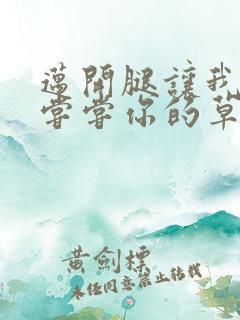 邁開腿讓我
嘗嘗你的草
黃劍標
未經同意禁止轉載